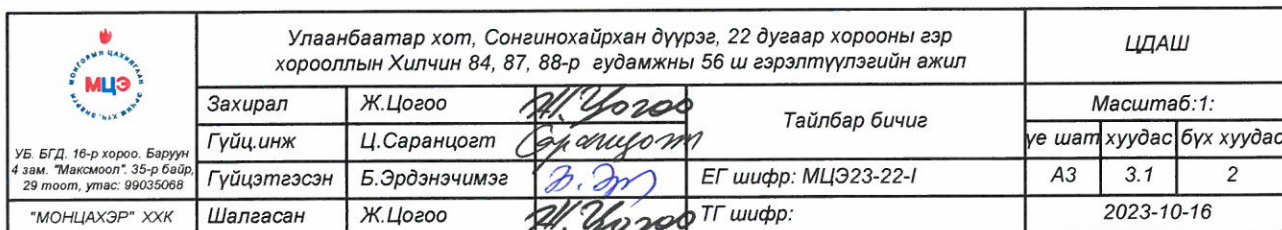 МОНГОЛЫН ЦАХИЛГААН ЭРЧИМ ХҮЧ, ЭНЕРГИ
МЦЭ
УБ. БГД. 16-р хороо. Баруун
4 зам. "Максмоол". 35-р байр,
29 тоот, утас: 99035068
"МОНЦАХЭР" ХХК
Улаанбаатар хот, Сонгинохайрхан дүүрэг, 22 дугаар хорооны гэр
хорооллын Хилчин 84, 87, 88-р гудамжны 56 ш гэрэлтүүлэгийн ажил
ЦДАШ
Захирал Ж.Цогоо Ж.Цогоо
Гүйц.инж Ц.Саранцогт Саранцогт
Гүйцэтгэсэн Б.Эрдэнэчимэг Б.Эр
Шалгасан Ж.Цогоо Ж.Цогоо
Тайлбар бичиг
ЕГ шифр: МЦЭ23-22-I
ТГ шифр:
Масштаб:1:
үе шат хуудас бүх хуудас
А3 3.1 2
2023-10-16